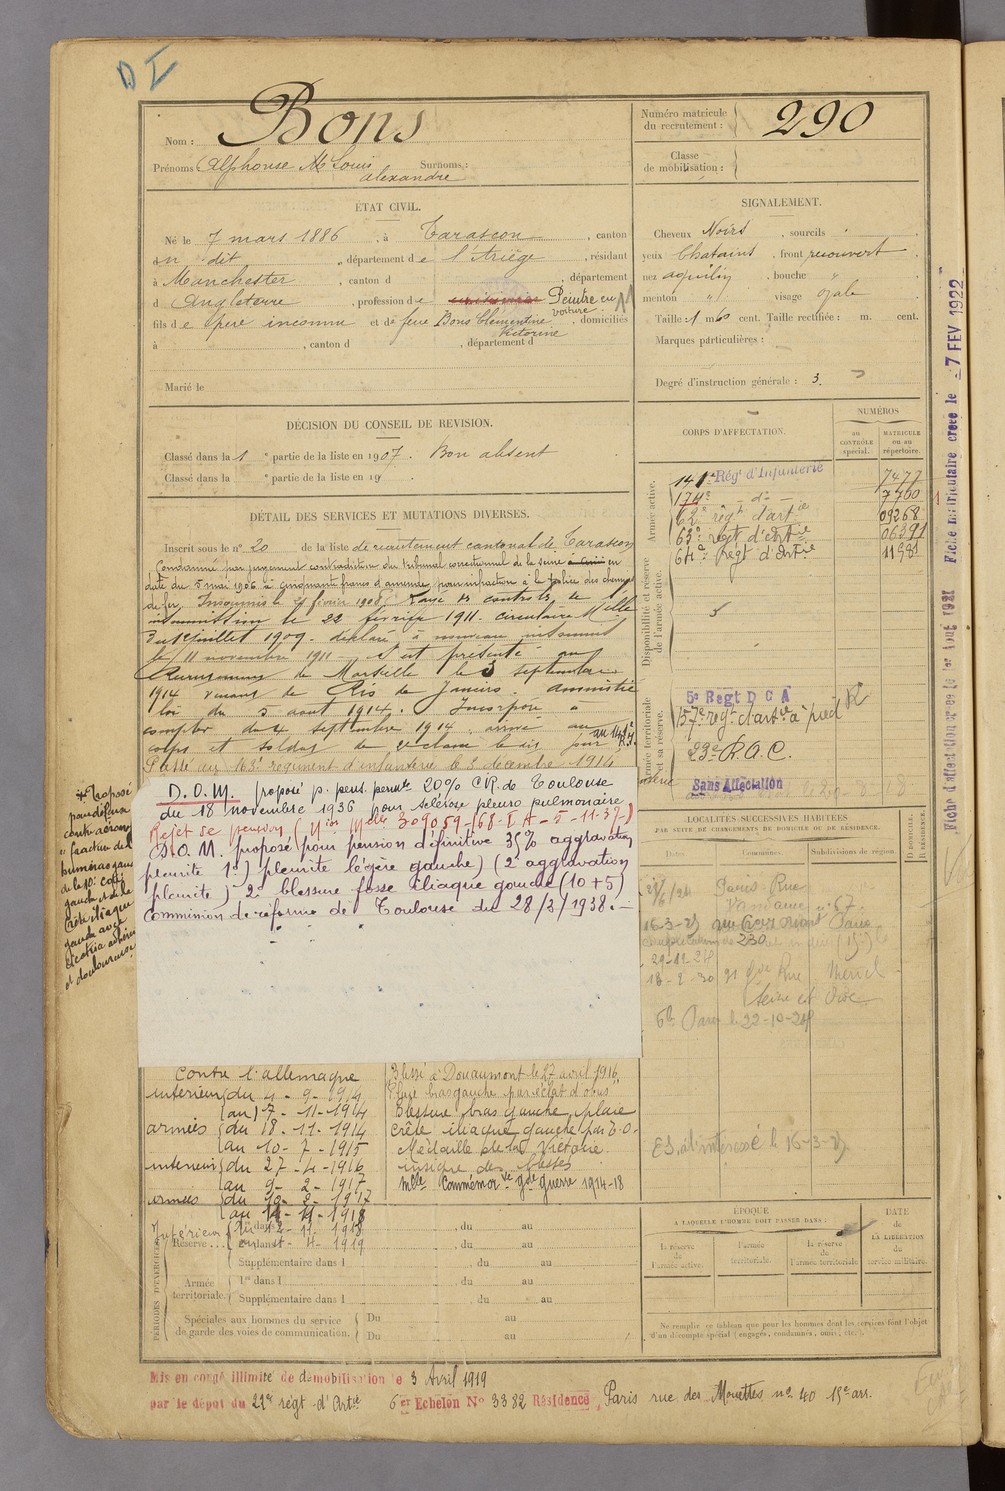 D I
Nom : Bons
Prénoms : Alphonse Me Louis Surnoms :
alexandre
Numéro matricule
du recrutement : 290
Classe
de mobilisation :
ÉTAT CIVIL.
Né le 7 mars 1886 , à Tarascon , canton
du dit , département de l'Ariège , résidant
à Manchester , canton d , département
d Angleterre , profession de Peintre en
voiture
fils de père inconnu et de feue Bons Clémentine , domiciliés
Victorine
à , canton d , département d
Marié le
SIGNALEMENT.
Cheveux Noirs , sourcils
yeux Chatains , front recouvert
nez aquilin , bouche "
menton " visage ovale
Taille 1 m 60 cent. Taille rectifiée : m. cent.
Marques particulières :
Degré d'instruction générale : 3.
DÉCISION DU CONSEIL DE REVISION.
Classé dans la 1 e partie de la liste en 1907. Bon absent
Classé dans la e partie de la liste en 19 .
CORPS D'AFFECTATION.
NUMÉROS
au
CONTRÔLE
spécial.
MATRICULE
ou au
répertoire.
Armée active.
141e Régt d'Infanterie 7477
174e - do - 7700
62e régt d'artie 09268
63e regt d'artie 06391
64e regt d'Artie
Disponibilité et réserve
de l'armée active.
Armée territoriale
et sa réserve.
5e Regt D C A
157e regt d'artie à pied
23e R.A.C.
Sans Affectation
DÉTAIL DES SERVICES ET MUTATIONS DIVERSES.
Inscrit sous le n° 20 de la liste de recrutement cantonal de Tarascon
Condamné par jugement contradictoire du tribunal correctionnel de la Seine en
date du 5 mai 1906 à cinquante francs d'amende pour infraction à la police des chemins
de fer. Insoumis le février 1908. Rayé des controles de l'
insoumission le 22 février 1911. circulaire Mlle
du 1er juillet 1909. déclaré à nouveau insoumis
le 11 novembre 1911. S'est présenté au
Recrutement de Marseille le 3 septembre
1914 venant de Rio de Janeiro. Amnistié
loi du 5 aout 1914. Incorporé à
compter du 4 septembre 1914 arrivé au
corps et soldat de 2e classe le dit jour
Passé au 163e regiment d'infanterie le 3 décembre 1914
D.O.M. proposé p. pens. permte 20% C.R. de Toulouse
du 18 novembre 1936 pour sclérose pleuro pulmonaire
Rejet de pension
D.O.M. proposé pour pension définitive 35% aggravation
pleurite 1°) pleurite légère gauche) (2° aggravation
pleurite) 2° blessure fosse iliaque gauche (10+5)
Commission de réforme de Toulouse du 28/3/1938.
* Proposé
pour
fracture de l'
humérus gauche
de la 10e côte
gauche et de la
crête iliaque
gauche avec
cicatrice adhérente
et douloureuse
LOCALITÉS SUCCESSIVES HABITÉES
PAR SUITE DE CHANGEMENTS DE DOMICILE OU DE RÉSIDENCE.
Dates. Communes. Subdivisions de région. D DOMICILE. R RÉSIDENCE.
Paris Rue
n° 67.
16-3-25 Paris
230
29-11-28
18-2-30 91 gde Rue
Seine et Oise
Paris le 22-10-28
16-3-25
contre l'allemagne
intérieur du 4 - 9 - 1914
au 17 - 11 - 1914
armées du 18 - 11 - 1914
au 10 - 7 - 1915
intérieur du 27 - 4 - 1916
au 9 - 2 - 1917
armées du 10 - 2 - 1917
au 11 - 11 - 1918
Intérieur du 12 - 11 - 1918
au - 4 - 1919
Blessé à Douaumont le 27 avril 1916
"Plaie bras gauche par éclat d'obus"
Blessure bras gauche, plaie
crête iliaque gauche par E.O.
Médaille de la Victoire
insigne des blessés
Mlle Commémorve gde guerre 1914-18
PÉRIODES D'EXERCICES
Réserve ... 1re dans l , du au
2e dans l , du au
Supplémentaire dans l , du au
Armée
territoriale. 1re dans l du au
Supplémentaire dans l du au
Spéciales aux hommes du service
de garde des voies de communication. Du au
Du au
ÉPOQUE
À LAQUELLE L'HOMME DOIT PASSER DANS :
DATE
de
LA LIBÉRATION
du
service militaire.
la réserve
de
l'armée active.
l'armée
territoriale.
la réserve
de
l'armée territoriale
Ne remplir ce tableau que pour les hommes dont les services font l'objet
d'un décompte spécial (engagés, condamnés, omis, etc.).
Mis en congé illimité de démobilisation le 3 Avril 1919
par le dépôt du 21e régt d'Artie 6e Echelon N° 3382 Résidence, Paris rue des Mouettes n° 40 15e arr.
Fiche d'affectation créée le 1er Aout 1921 Fiche matriculaire créée le -7 FEV 1922